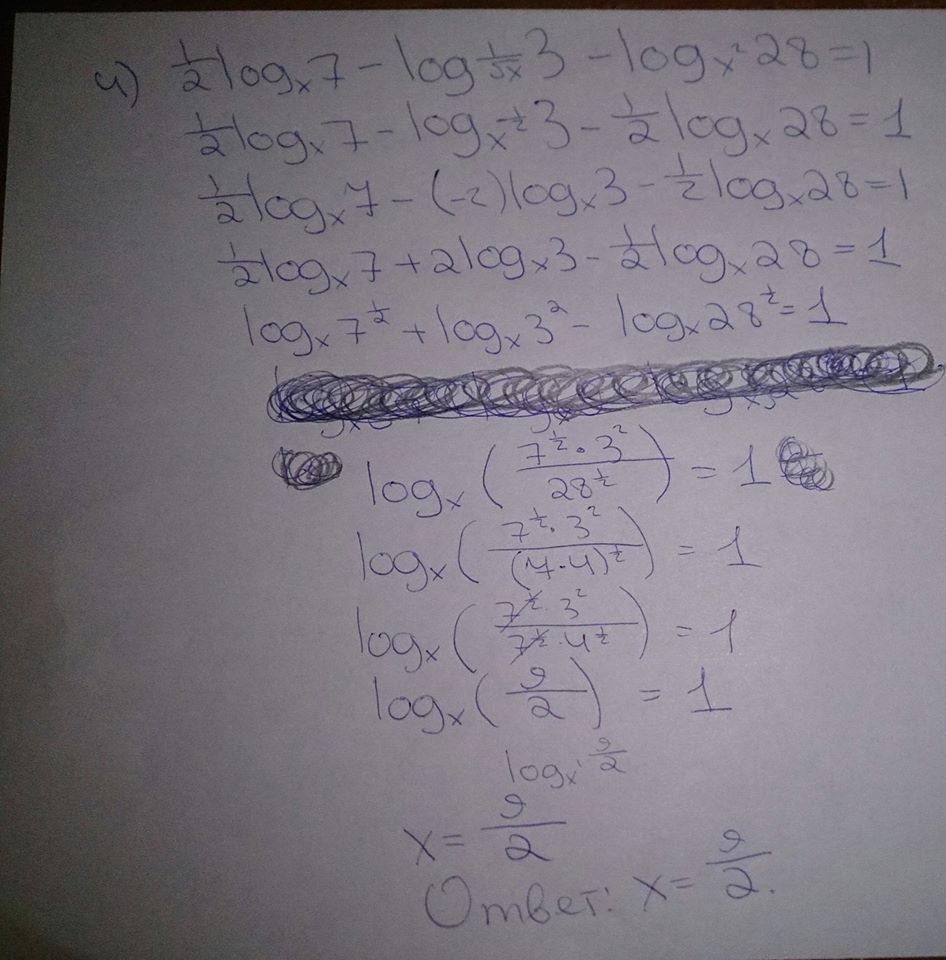 4) 1/2 log_x 7 - log_{1/√x} 3 - log_{x^2} 28 = 1
1/2 log_x 7 - log_{x^{-1/2}} 3 - 1/2 log_x 28 = 1
1/2 log_x 7 - (-2) log_x 3 - 1/2 log_x 28 = 1
1/2 log_x 7 + 2 log_x 3 - 1/2 log_x 28 = 1
log_x 7^{1/2} + log_x 3^2 - log_x 28^{1/2} = 1
log_x ( 7^{1/2} · 3^2 / 28^{1/2} ) = 1
log_x ( 7^{1/2} · 3^2 / (7·4)^{1/2} ) = 1
log_x ( 7^{1/2} · 3^2 / 7^{1/2} · 4^{1/2} ) = 1
log_x ( 9/2 ) = 1
log_x 9/2
x = 9/2
Ответ: x = 9/2.